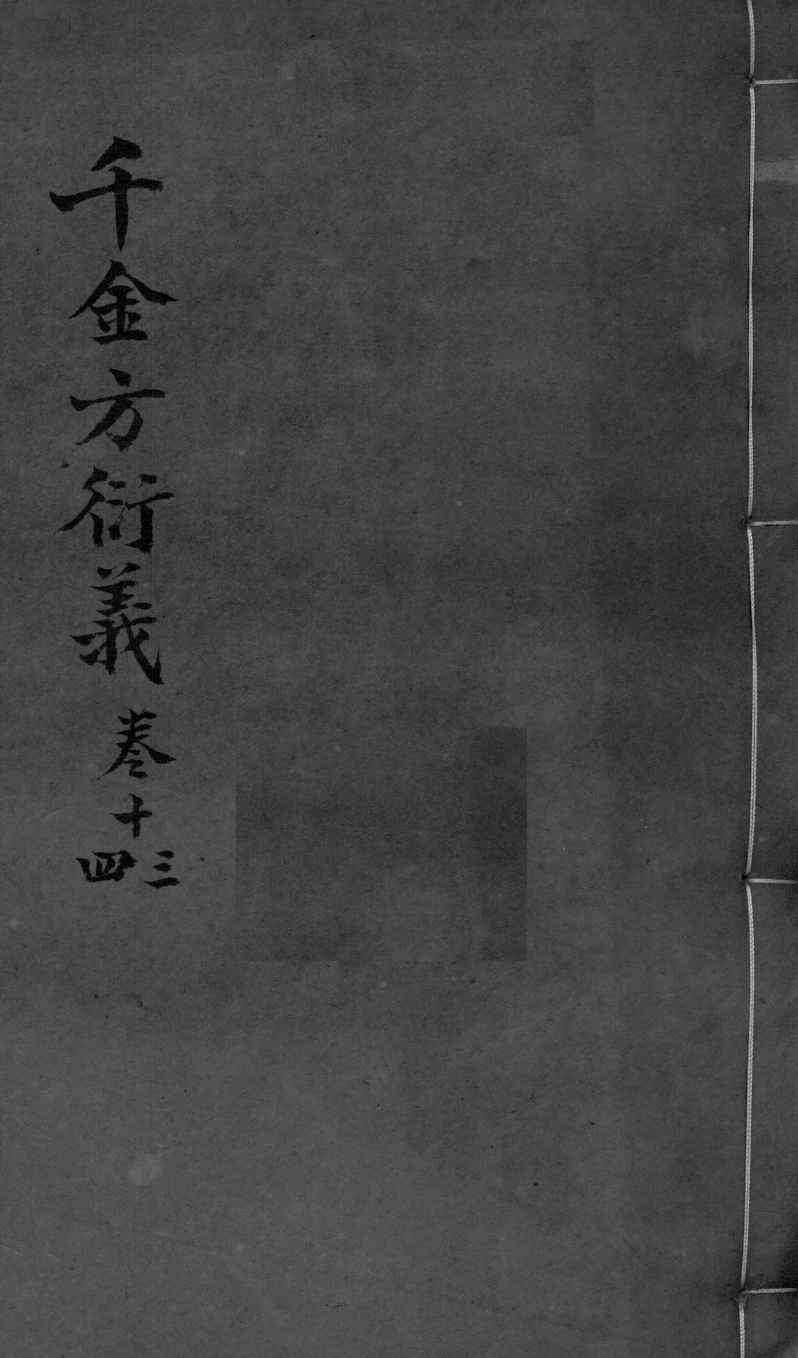 千金方衍義 卷十三
四